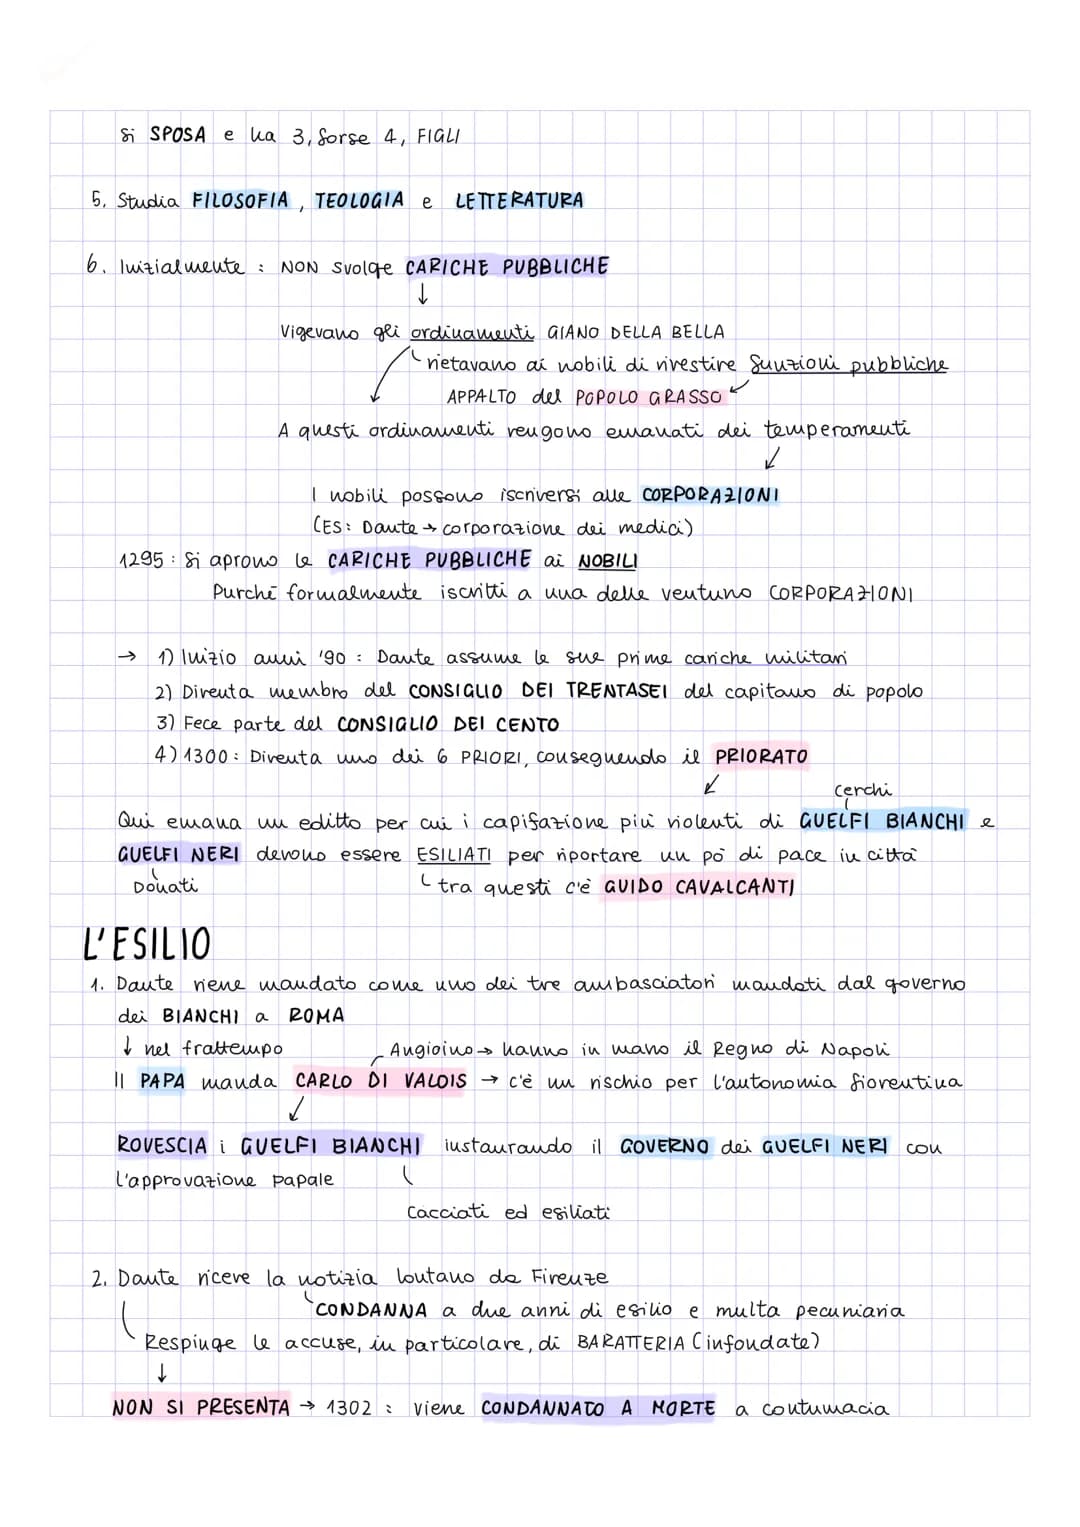 Si SPOSA e ha 3, forse 4, FIGLI
5. Studia FILOSOFIA, TEOLOGIA e LETTERATURA
6. Inizialmente: NON svolge CARICHE PUBBLICHE
↓
Vigevano gli ordinamenti GIANO DELLA BELLA
vietavano ai nobili di rivestire funzioni pubbliche
APPALTO del POPOLO GRASSO
A questi ordinamenti vengono emanati dei temperamenti
I nobili possono iscriversi alle CORPORAZIONI
(ES: Dante → corporazione dei medici)
1295: Si aprono le CARICHE PUBBLICHE ai NOBILI
Purché formalmente iscritti a una delle ventuno CORPORAZIONI
→ 1) Inizio anni '90: Dante assume le sue prime cariche militari
2) Diventa membro del CONSIGLIO DEI TRENTASEI del capitano di popolo
3) Fece parte del CONSIGLIO DEI CENTO
4) 1300: Diventa uno dei 6 PRIORI, conseguendo il PRIORATO
Cerchi
Qui emana un editto per cui i capifazione più violenti di GUELFI BIANCHI e
GUELFI NERI devono essere ESILIATI per riportare un pò di pace in città
Donati
tra questi c'è GUIDO CAVALCANTI
L'ESILIO
1. Dante viene mandato come uno dei tre ambasciatori mandati dal governo
dei BIANCHI a ROMA
↓ nel frattempo
Angioino → hanno in mano il Regno di Napoli
Il PAPA manda CARLO DI VALOIS → c'è un rischio per l'autonomia fiorentina
ROVESCIA i GUELFI BIANCHI instaurando il GOVERNO dei GUELFI NERI con
l'approvazione papale
Cacciati ed esiliati
2. Dante riceve la notizia lontano da Firenze
CONDANNA a due anni di esilio e multa pecuniaria
Respinge le accuse, in particolare, di BARATTERIA (infondate)
↓
NON SI PRESENTA → 1302: viene CONDANNATO A MORTE a contumacia